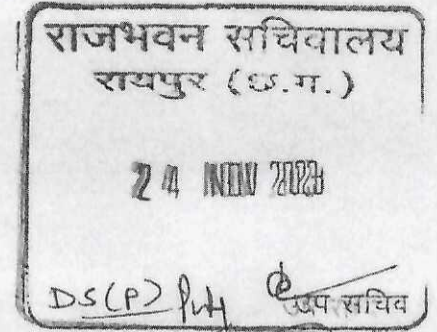 राजभवन सचिवालय
रायपुर (छ.ग.)
24 NOV
DS(P)
उप सचिव